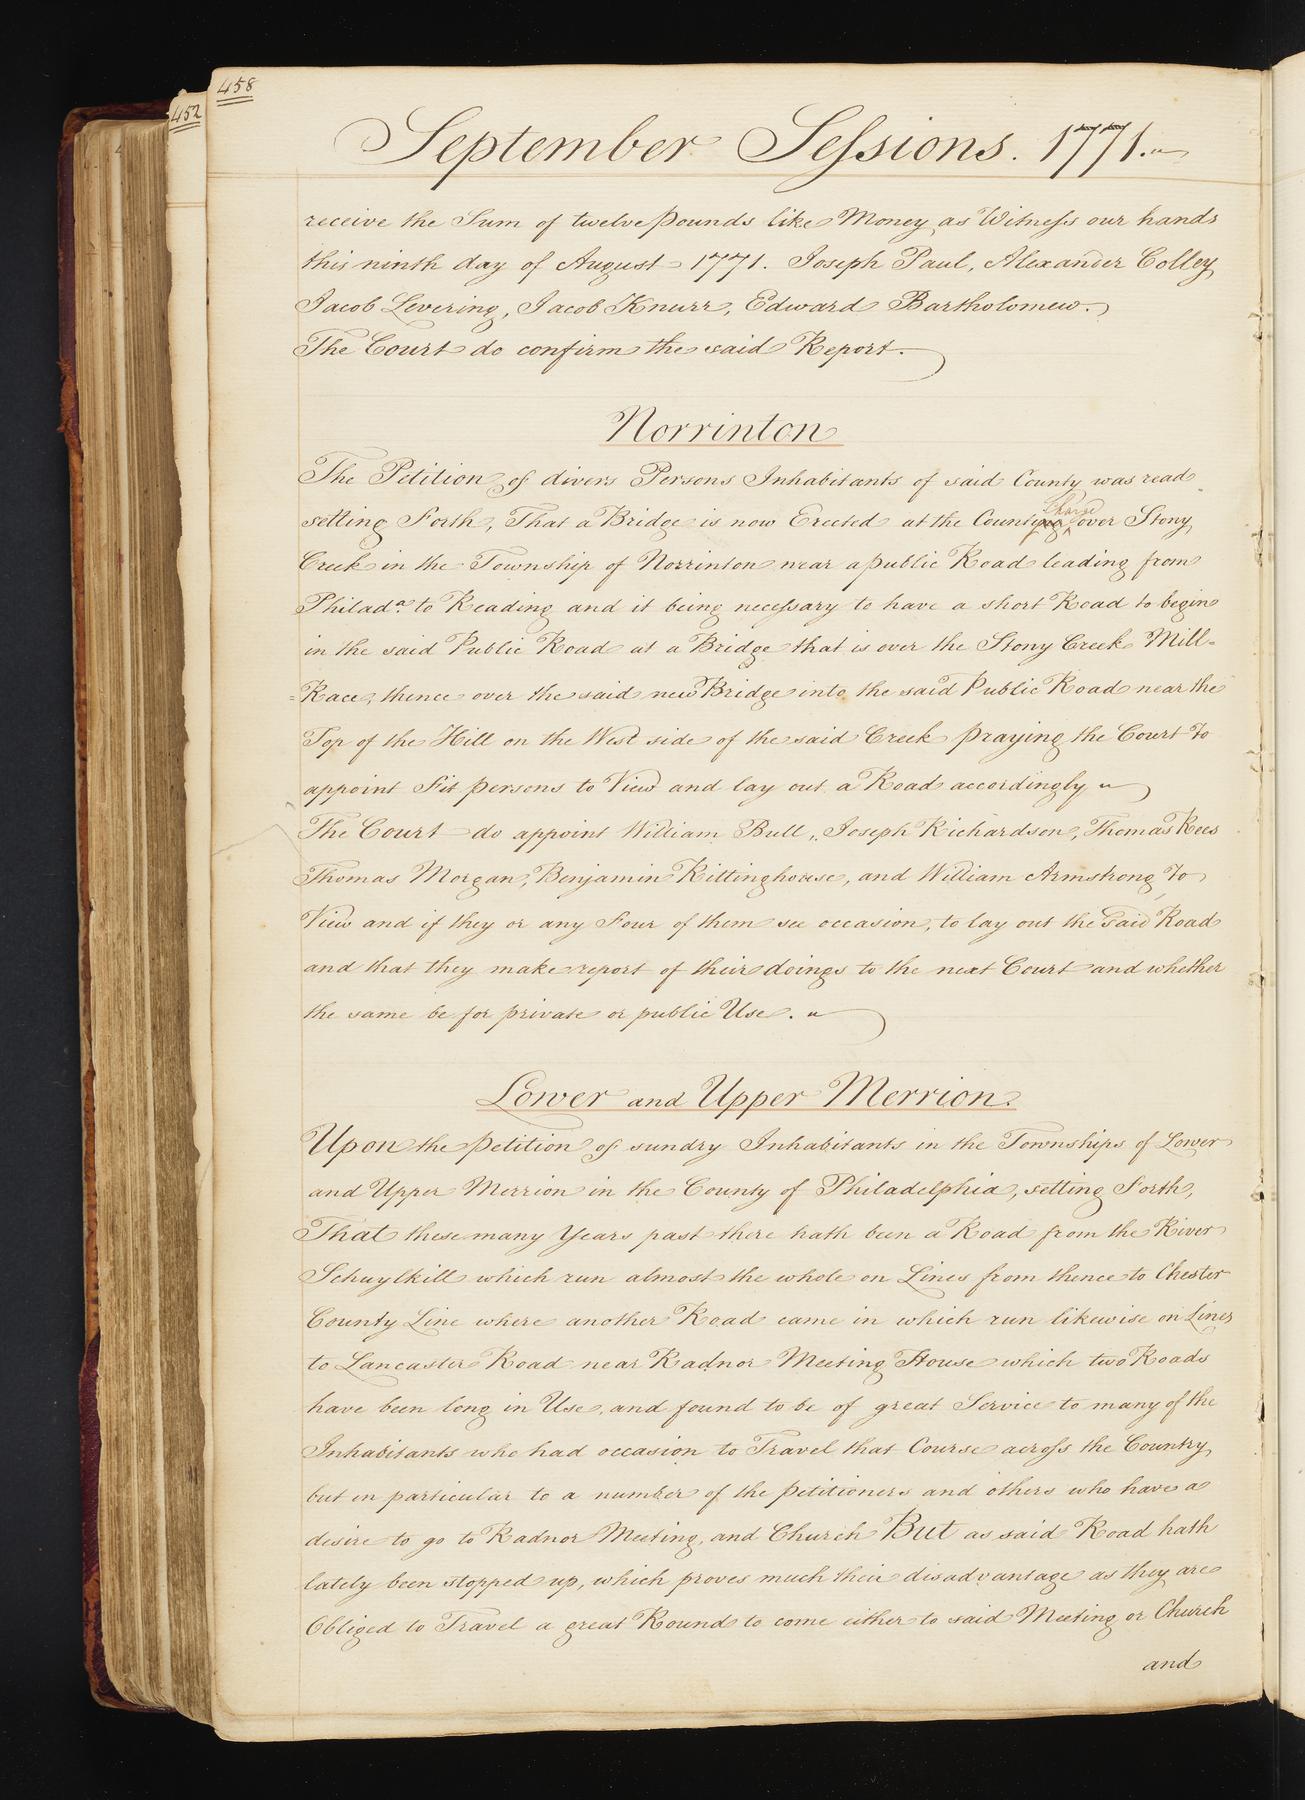 458
452
September Sessions. 1771.
receive the Sum of twelve pounds like Money, as Witness our hands
this ninth day of August 1771. Joseph Paul, Alexander Colley
Jacob Levering, Jacob Knurr, Edward Bartholomew.
The Court do confirm the said Report.
Norrinton
The Petition of divers Persons Inhabitants of said County was read
setting Forth, That a Bridge is now Erected at the County Charge over Stony
Creek in the Township of Norrinton near a public Road leading from
Philada. to Reading and it being necessary to have a short Road to begin
in the said Public Road at a Bridge that is over the Stony Creek Mill=
=Race, thence over the said new Bridge into the said Public Road near the
Top of the Hill on the West side of the said Creek praying the Court To
appoint Fit persons to View and lay out a Road accordingly
The Court do appoint William Bull, Joseph Richardson, Thomas Rees
Thomas Morgan, Benjamin Rittinghouse, and William Armstrong To
View and if they or any Four of them see occasion, to lay out the said Road
and that they make report of their doings to the next Court and whether
the same be for private or public Use.
Lower and Upper Merrion.
Upon the petition of sundry Inhabitants in the Townships of Lower
and Upper Merrion in the County of Philadelphia, setting Forth,
That these many Years past there hath been a Road from the River
Schuylkill which run almost the whole on Lines from thence to Chester
County Line where another Road came in which run likewise on Lines
to Lancaster Road near Radnor Meeting House which two Roads
have been long in Use, and found to be of great Service to many of the
Inhabitants who had occasion to Travel that Course across the Country
but in particular to a number of the petitioners and others who have a
desire to go to Radnor Meeting, and Church But as said Road hath
lately been stopped up, which proves much their disadvantage as they are
Obliged to Travel a great Round to come either to said Meeting or Church
and